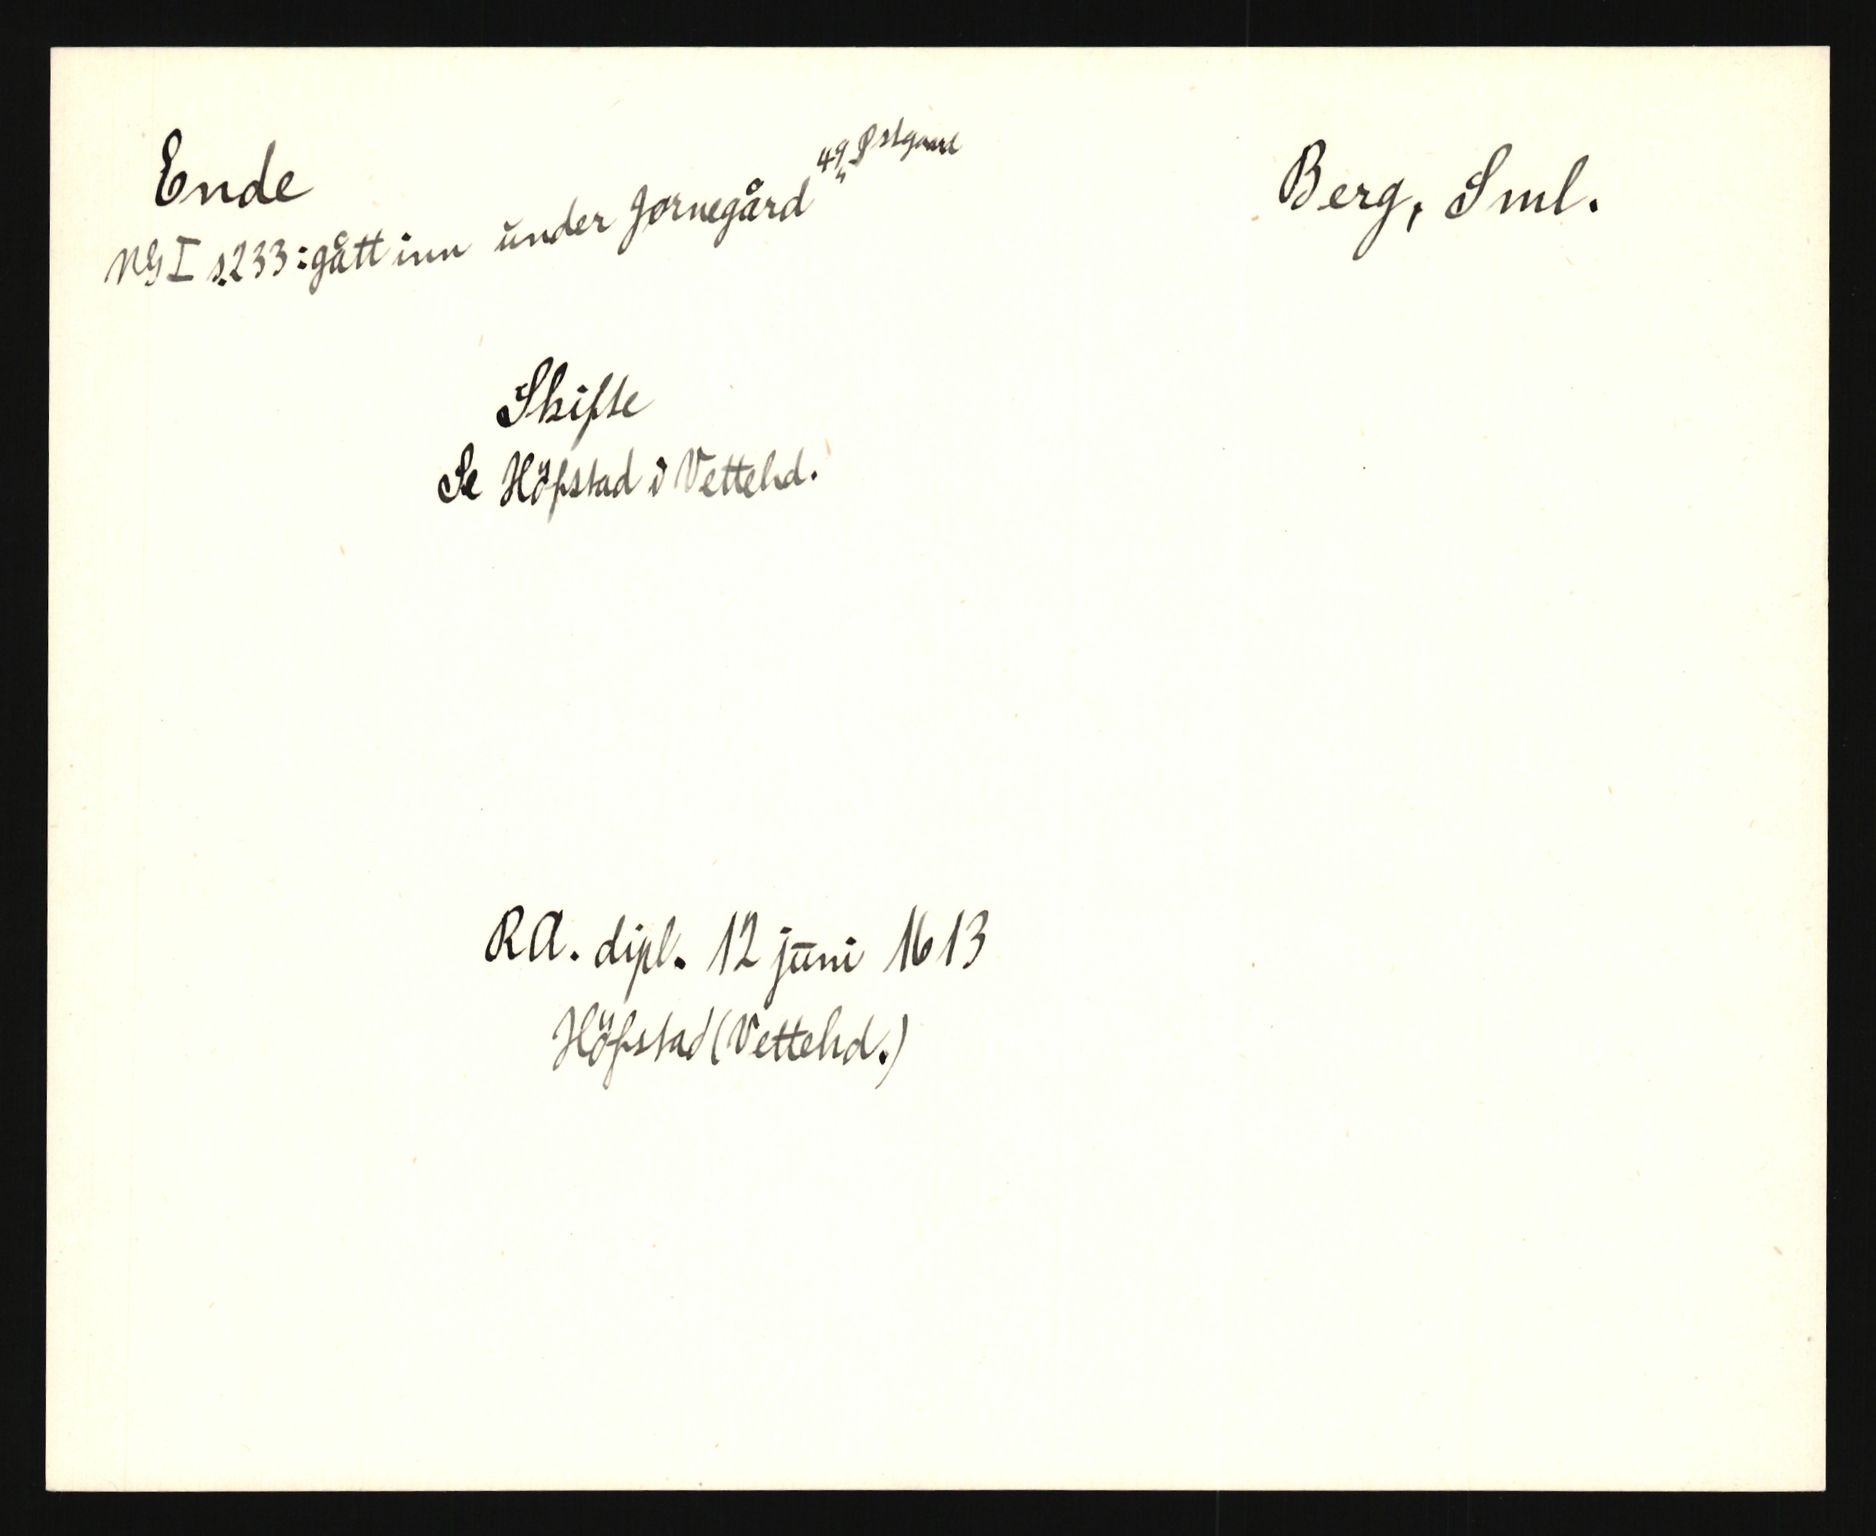 Ende
Berg, Sml.
NG I s.233: gått inn under Jornegård 49, Østgaard
Skifte
Se Höfstad i Vettehd.
RA. dipl. 12 juni 1613
Höfstad (Vettehd.)